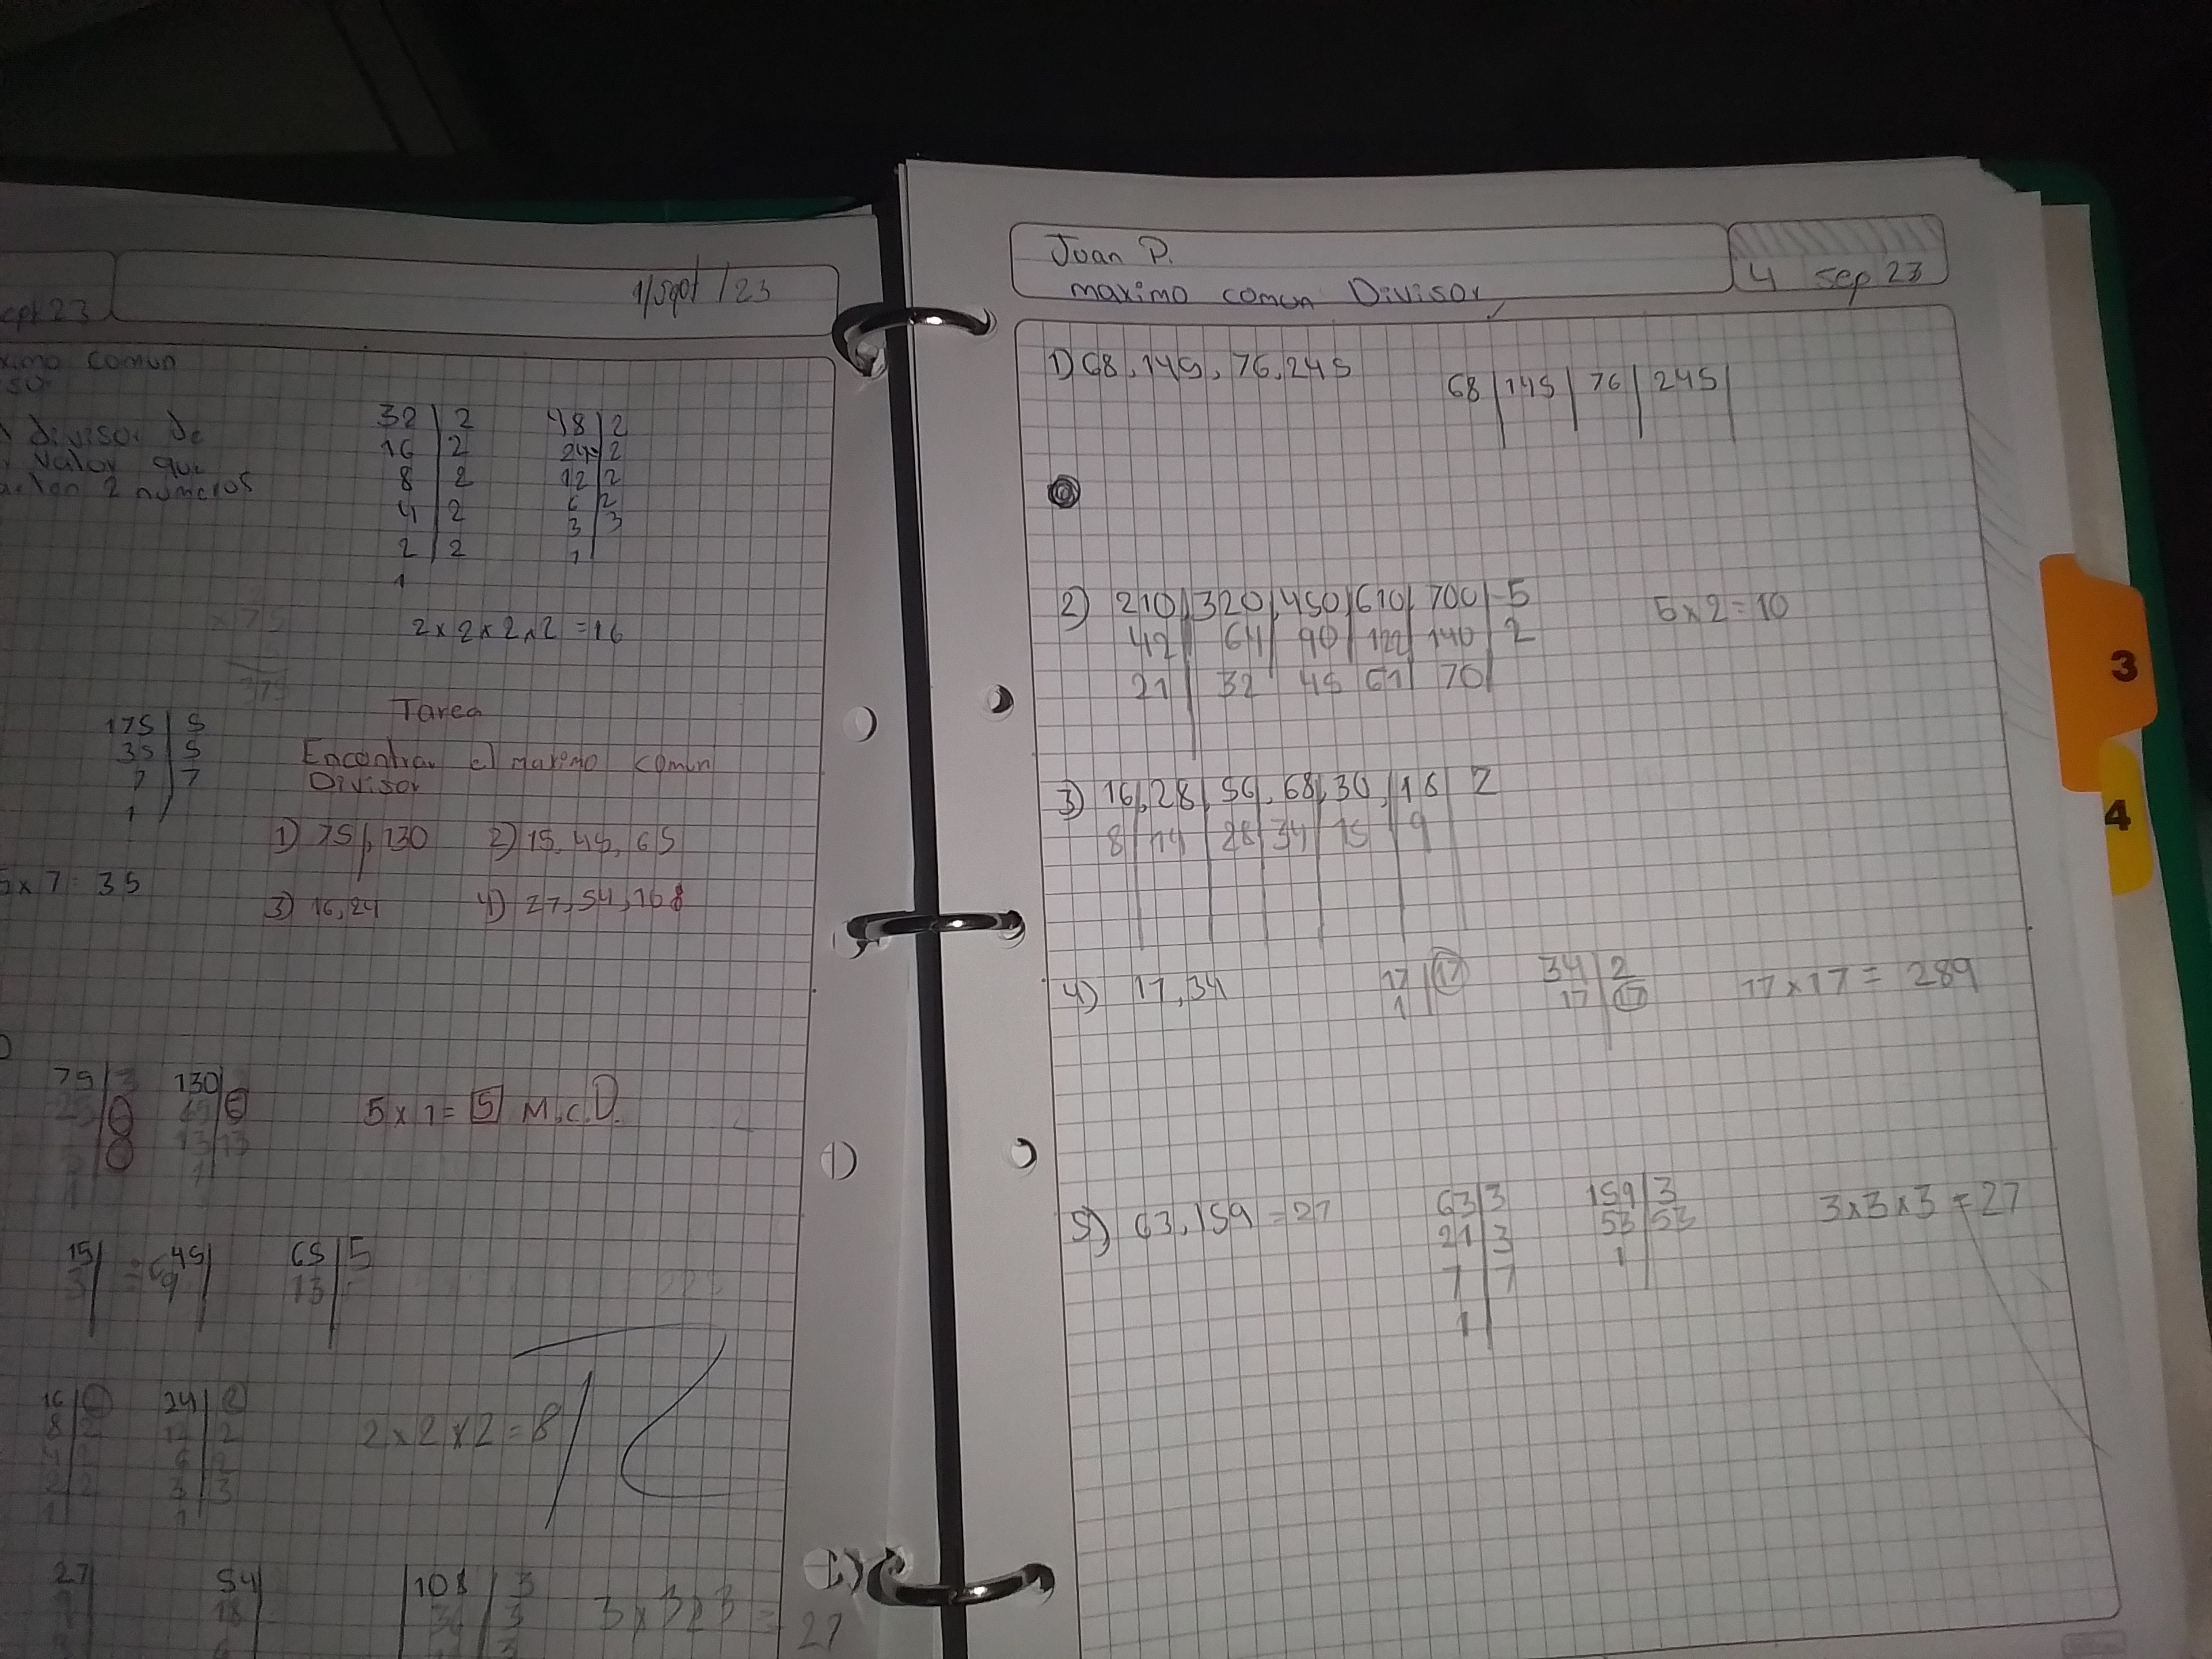 1/sept/23
ept 23
ximo comun
so
divisor de
valor que
2 numeros
32 | 2
16 | 2
8 | 2
4 | 2
2 | 2
1
48 | 2
24 | 2
12 | 2
6 | 2
3 | 3
1
2 x 2 x 2 x 2 = 16
175 | 5
35 | 5
7 | 7
1
5 x 7 = 35
Tarea
Encontrar el maximo comun
Divisor
1) 75, 130 2) 15, 45, 65
3) 16, 24 4) 27, 54, 108
75 | 3
130
13 | 13
1
5 x 1 = 5 M.C.D.
15 |
3 |
45 |
9 |
65 | 5
13 |
16 | 2
8 | 2
4 | 2
2 | 2
1
24 | 2
12 | 2
6 | 2
3 | 3
1
2 x 2 x 2 = 8
27
54
18
6
108 | 3
36 | 3
3
3 x 3 x 3 = 27
Juan P.
maximo comun Divisor
4 sep 23
1) 68, 145, 76, 245
68 | 145 | 76 | 245 |
2) 210, 320, 450, 610, 700 | 5
42 | 64 | 90 | 122 | 140 | 2
21 | 32 | 45 | 61 | 70 |
5 x 2 = 10
3) 16, 28, 56, 68, 30, 18 | 2
8 | 14 | 28 | 34 | 15 | 9
4) 17, 34
17 | 17
1
34 | 2
17 | 17
17 x 17 = 289
5) 63, 159 = 27
63 | 3
21 | 3
7 | 7
1
159 | 3
53 | 53
1
3 x 3 x 3 = 27
3
4